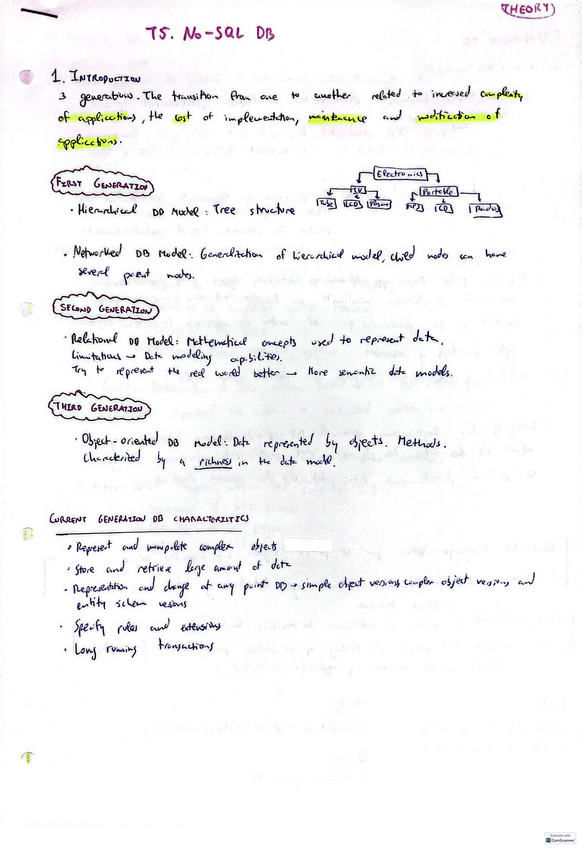 THEORY
T5. No-SQL DB
1. INTRODUCTION
3 generations. The transition from one to another related to incresed complexity
of applications, the cost of implementation, maintenance and modification of
applications.
FIRST GENERATION
Electronics
TV Portable
Tube LCD Plasma MP3 CD Radio
· Hierarchical DB Model: Tree structure
· Networked DB Model: Generalization of hierarchical model, child nodes can have
several parent nodes.
SECOND GENERATION
· Relational DB Model: Mathematical concepts used to represent data.
Limitations → Data modeling capabilities.
Try to represent the real world better → More semantic data models.
THIRD GENERATION
· Object-oriented DB Model: Data represented by objects. Methods.
Characterized by a richness in the data model.
CURRENT GENERATION DB CHARACTERISTICS
· Represent and manipulate complex objects
· Store and retrieve large amount of data
· Representation and change at any point DB → simple object versions complex object versions and
entity schema versions
· Specify rules and extensions
· Long running transactions
Scanned with
CamScanner